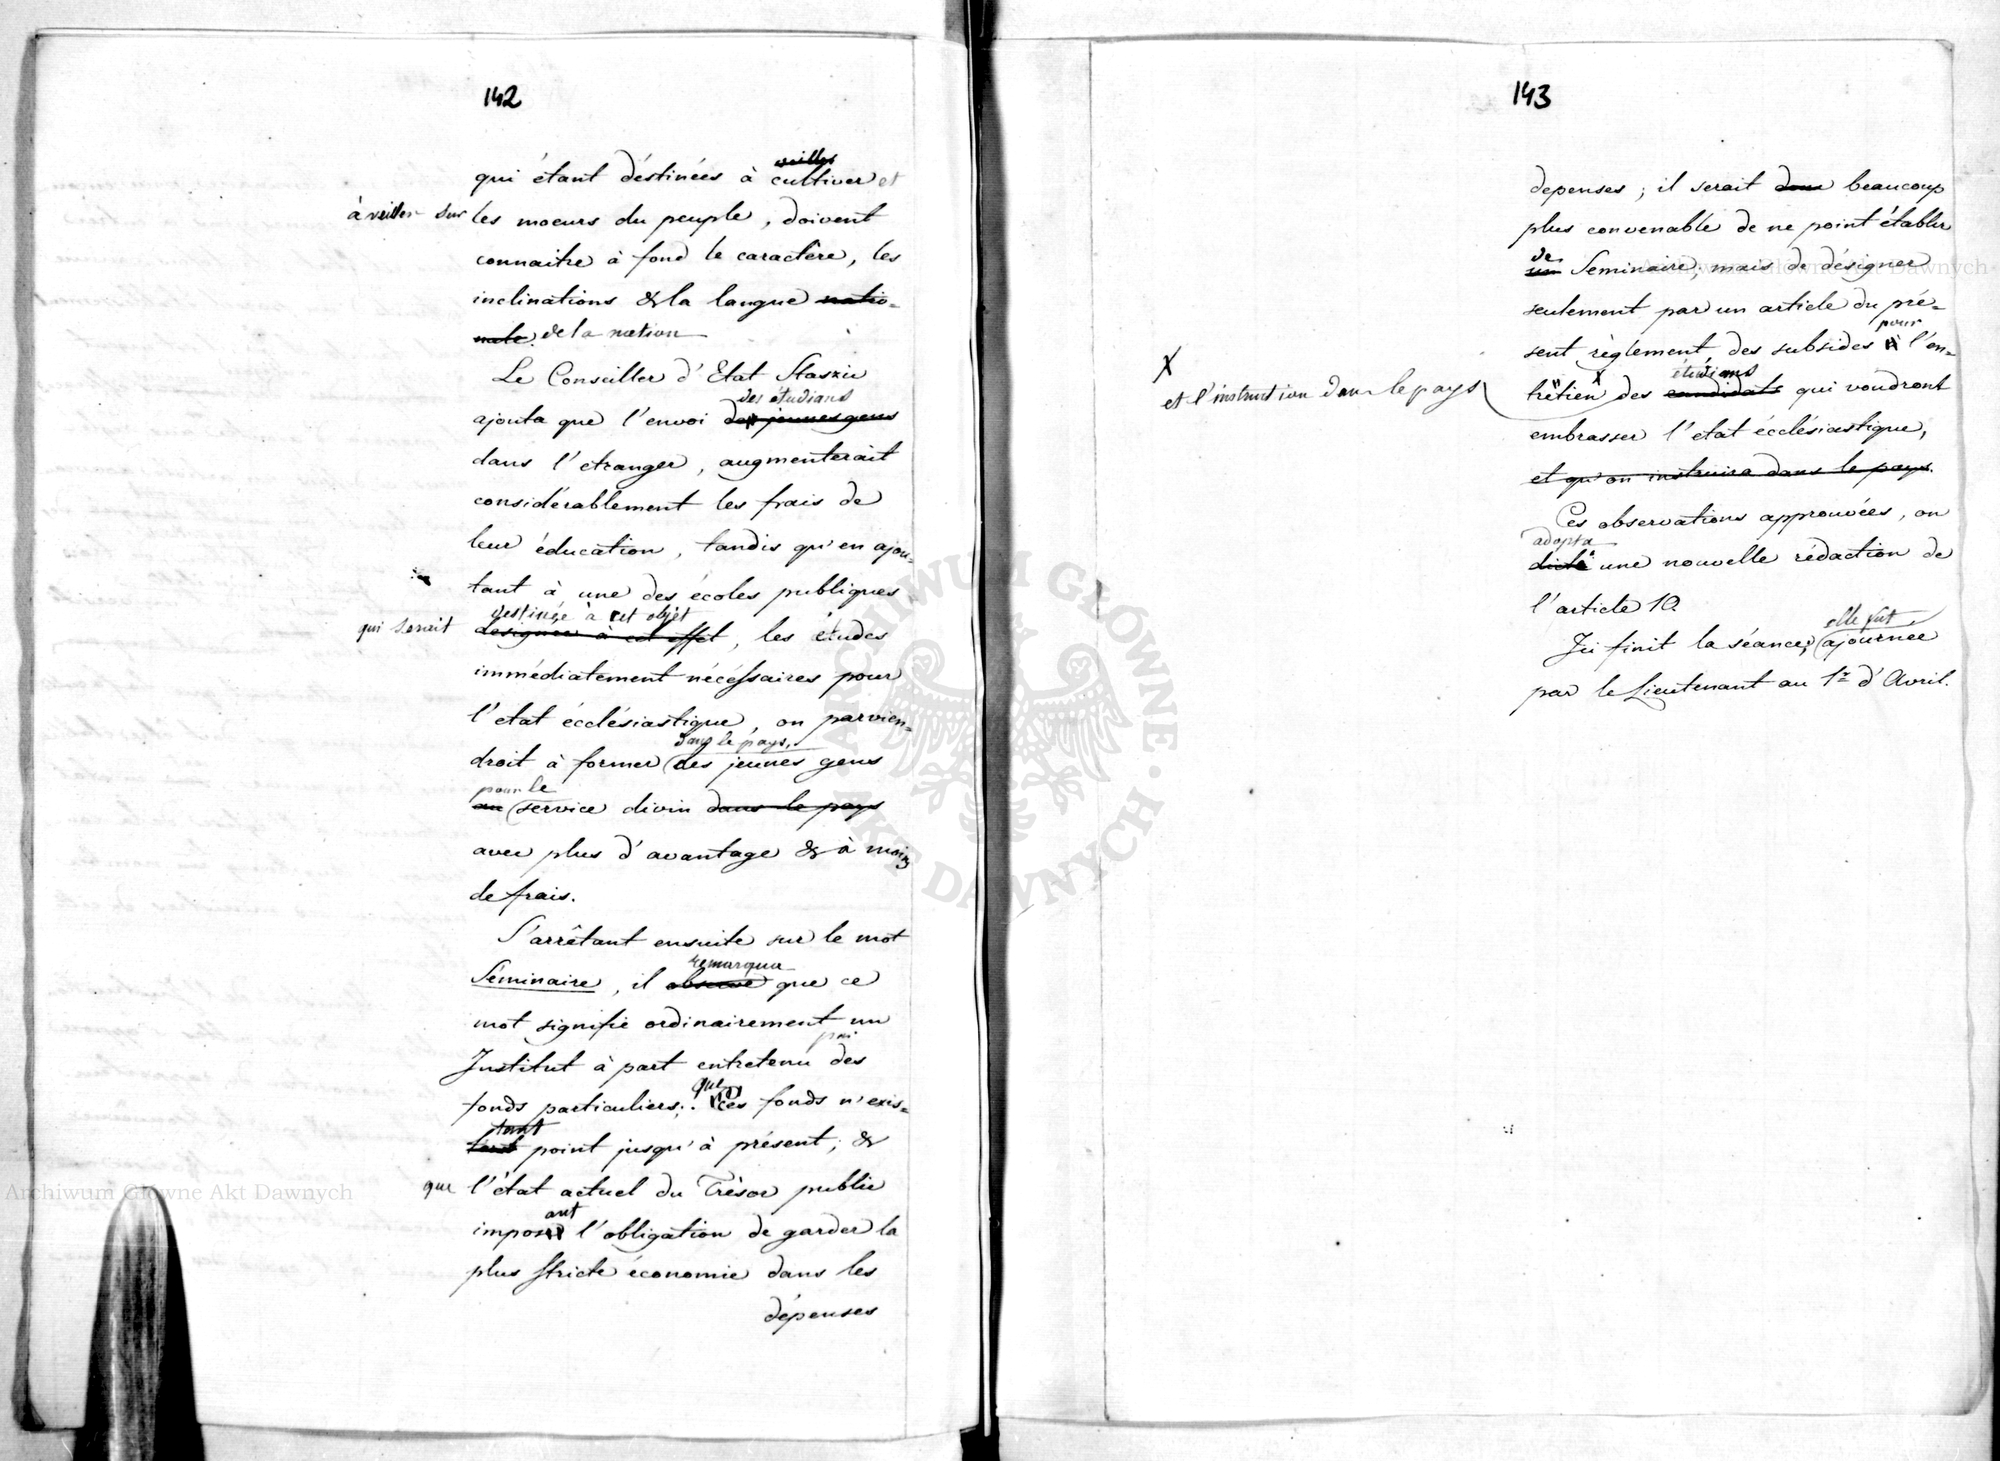 142
qui étant déstinées à cultiver et
à veiller sur les moeurs du peuple, doivent
connaitre à fond le caractère, les
inclinations & la langue natio-
nale de la nation
Le Conseiller d'Etat Staszic
des étudians
ajouta que l'envoi des jeunes gens
dans l'etranger, augmenterait
considérablement les frais de
leur éducation, tandis qu'en ajou-
tant à une des écoles publiques
destinée à cet objet
qui serait designée à cet effet, les études
immédiatement nécéssaires pour
l'etat écclésiastique, on parvien-
dans le pays
droit à former des jeunes gens
pour le
au service divin dans le pays
avec plus d'avantage & à moins
de frais.
S'arrêtant ensuite sur le mot
remarqua
Séminaire, il observe que ce
mot signifie ordinairement un
par
Institut à part entretenu des
que
fonds particuliers; ces fonds n'exis-
tant
point jusqu'à présent; &
que l'état actuel du Trésor public
ant
impose l'obligation de garder la
plus stricte économie dans les
dépenses
143
depenses; il serait donc beaucoup
plus convenable de ne point établir
de
un Seminaire, mais de désigner
seulement par un article du pré-
pour
sent règlement, des subsides à l'en-
étudians
X
et l'instruction dans le pays
tretien des candidats qui voudront
embrasser l'etat écclésiastique,
et qu'on instruira dans le pays.
Ces observations approuvées, on
adopta
dicta une nouvelle rédaction de
l'article 10.
elle fut
Ici finit la séance, ajournée
par le Lieutenant au 1r d'Avril.
ARCHIWUM GŁÓWNE AKT DAWNYCH
Archiwum Główne Akt Dawnych
Archiwum Główne Akt Dawnych